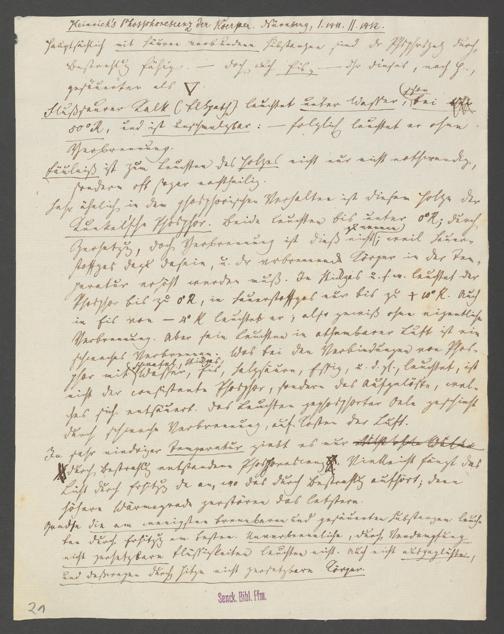 Heinrich's Phosphorescenz der Körper. Nürnberg, I. 1811. II. 1812.
Hauptsächlich mit Säuren verbundene Substanzen sind der Phosphoresz durch
Bestrahlg fähig. — doch auch Eis, — Ist dieses, nach H.,
gesäuerter als
Flußsaurer Kalk (Flßspath) leuchtet unter Wasser, bei
50°R, und ist unschmelzbar: — folglich leuchtet er ohne
Verbrennung.
Fäulniß ist zum Leuchten des Holzes nicht nur nicht nothwendig,
sondern oft sogar nachtheilig.
Sehr ähnlich in dem phosphorischen Verhalten ist diesem Holze der
Kunkelsche Phosphor. Beide leuchten bis unter 0°R; durch
Zersetzg, doch Verbrennung ist dieß nicht; weil Sauer-
stoffgas dazu u. der verbrennende Körper in der Tem-
peratur erhöht werden muß. In Stickgas u.s.w. leuchtet der
Phosphor bis zu 0°R, in Sauerstoffgas nur bis zu + 10°R. Auch
in Eis von — °R leuchtet er, also gewiß ohne eigentliche
Verbrennung. Aber sein Leuchten in athembarer Luft ist ein
schwaches Verbrennen. Was bei den Verbindungen von Phos-
phor mit Wasser, Eis, Salzsäure, Essig, u. d. gl., leuchtet, ist
nicht der consistente Phosphor, sondern das Aufgelöste, wel-
ches sich entsäuert. Das Leuchten gephosphorter Oele geschieht
durch schwache Verbrennung, auf Kosten der Luft.
In sehr niedriger Temperatur giebt es nur
durch Bestrahlg entstandene Phosphorescenz. Vielleicht fängt das
Licht durch Erhitzg da an, wo das durch Bestrahlg aufhört, denn
höhere Wärmegrade zerstören das letztere.
Gerade die am wenigsten brennbaren und gesäuerten Substanzen leuch-
ten durch Erhitzg am besten. Unverbrennliche, durch Verdampfung
nicht zersetzbare Flüssigkeiten leuchten nicht. Auch nicht ausgeglühte,
und deswegen durch Hitze nicht zersetzbare Körper.
Senck. Bibl. Ffm.
21